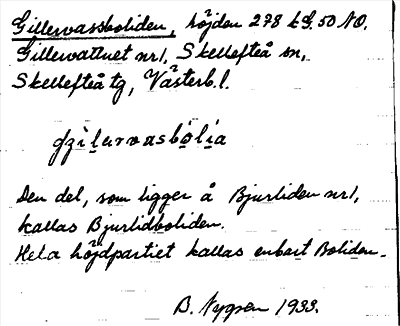 Gillervassboliden, höjden 278 k G. 50 NO.
Gillervattnet nr 1, Skellefteå sn,
Skellefteå tg, Västerb. l.
gzilervasbolia
Den del, som ligger å Bjurliden nr 1,
kallas Bjurlidboliden.
Hela höjdpartiet kallas enbart Boliden.
B. Nygren 1933.